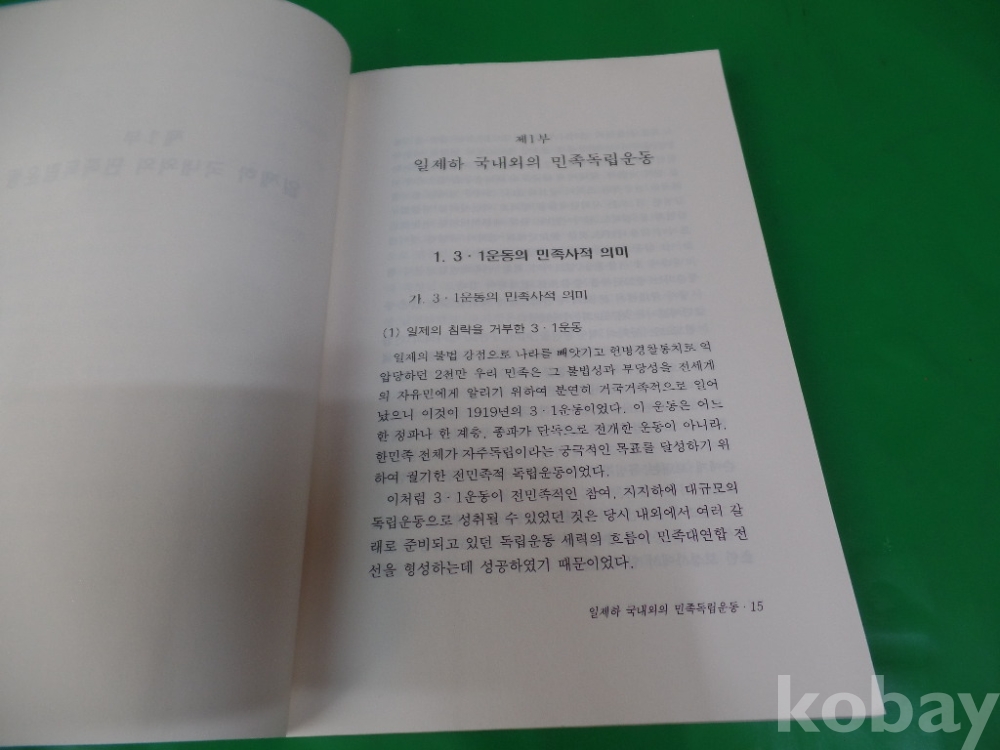 제1부
일제하 국내외의 민족독립운동
1. 3·1운동의 민족사적 의미
가. 3·1운동의 민족사적 의미
(1) 일제의 침략을 거부한 3·1운동
일제의 불법 강점으로 나라를 빼앗기고 헌병경찰통치로 억
압당하던 2천만 우리 민족은 그 불법성과 부당성을 전세계
의 자유민에게 알리기 위하여 분연히 거국거족적으로 일어
났으니 이것이 1919년의 3·1운동이었다. 이 운동은 어느
한 정파나 한 계층, 종파가 단독으로 전개한 운동이 아니라,
한민족 전체가 자주독립이라는 궁극적인 목표를 달성하기 위
하여 궐기한 전민족적 독립운동이었다.
이처럼 3·1운동이 전민족적인 참여, 지지하에 대규모의
독립운동으로 성취될 수 있었던 것은 당시 내외에서 여러 갈
래로 준비되고 있던 독립운동 세력의 흐름이 민족대연합 전
선을 형성하는데 성공하였기 때문이었다.
일제하 국내외의 민족독립운동·15
kobay